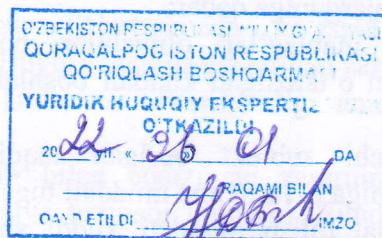 O'ZBEKISTON RESPUBLIKASI MILLIY
QORAQALPOG'ISTON RESPUBLIKASI
QO'RIQLASH BOSHQARMASI
YURIDIK HUQUQIY EKSPERTIZ
O'TKAZILDI
2022 yil. « 26 » 01 DA
RAQAMI BILAN
QAYD ETILDI IMZO